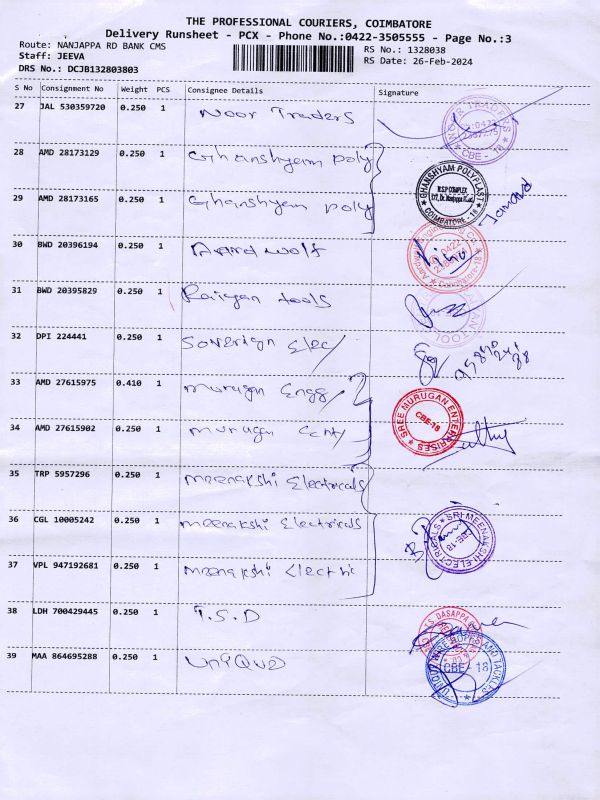 THE PROFESSIONAL COURIERS, COIMBATORE
Delivery Runsheet - PCX - Phone No.:0422-3505555 - Page No.:3
Route: NANJAPPA RD BANK CMS
RS No.: 1328038
Staff: JEEVA
RS Date: 26-Feb-2024
DRS No.: DCJB132803803
S No Consignment No Weight PCS Consignee Details Signature
27 JAL 530359720 0.250 1 Noor Traders
TRADERS CBE - 18
28 AMD 28173129 0.250 1 Ghanshyam poly
GHANSHYAM POLYPLAST
COIMBATORE - 18
29 AMD 28173165 0.250 1 Ghanshyam poly
30 BWD 20396194 0.250 1 Aardwolf
0422
31 BWD 20395829 0.250 1 Raiyan tools
32 DPI 224441 0.250 1 Soverign Elec/
33 AMD 27615975 0.410 1 Murugan Engg/
SREE MURUGAN ENTERPRISES
CBE-18
34 AMD 27615902 0.250 1 Murugan
35 TRP 5957296 0.250 1 Meenakshi Electricals
36 CGL 10005242 0.250 1 Meenakshi Electricals
SRI MEENAKSHI ELECTRICALS
CBE-18
37 VPL 947192681 0.250 1 Meenakshi Electric
38 LDH 700429445 0.250 1 T.S.D
39 MAA 864695288 0.250 1 Unique
ROPES AND TACKLES
CBE - 18